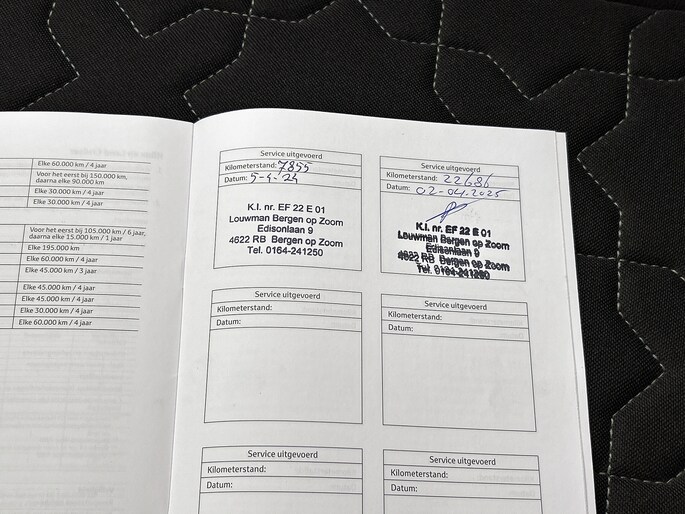 Elke 60.000 km / 4 jaar
Voor het eerst bij 150.000 km,
daarna elke 90.000 km
Elke 30.000 km / 4 jaar
Elke 30.000 km / 4 jaar
Voor het eerst bij 105.000 km / 6 jaar,
daarna elke 15.000 km / 1 jaar
Elke 195.000 km
Elke 60.000 km / 4 jaar
Elke 45.000 km / 3 jaar
Elke 45.000 km / 4 jaar
Elke 45.000 km / 4 jaar
Elke 30.000 km / 4 jaar
Elke 60.000 km / 4 jaar
Service uitgevoerd
Kilometerstand: 7855
Datum: 5-4-24
K.I. nr. EF 22 E 01
Louwman Bergen op Zoom
Edisonlaan 9
4622 RB Bergen op Zoom
Tel. 0164-241250
Service uitgevoerd
Kilometerstand: 22686
Datum: 02-04-2025
K.I. nr. EF 22 E 01
Louwman Bergen op Zoom
Edisonlaan 9
4622 RB Bergen op Zoom
Tel. 0164-241250
Service uitgevoerd
Kilometerstand:
Datum:
Service uitgevoerd
Kilometerstand:
Datum:
Service uitgevoerd
Kilometerstand:
Datum:
Service uitgevoerd
Kilometerstand:
Datum: